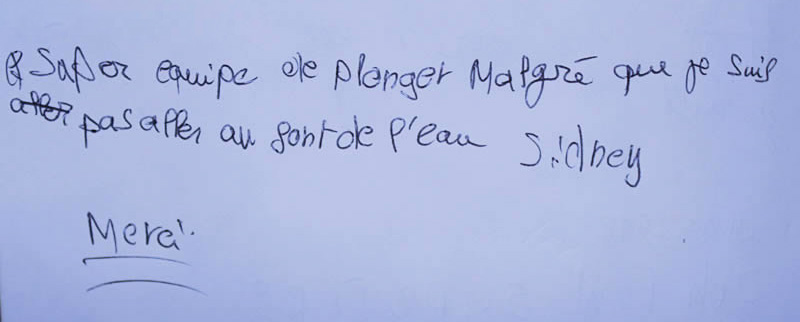 Super equipe de plonger Malgré que je suis
pas aller au font de l'eau Sidney
Merci.